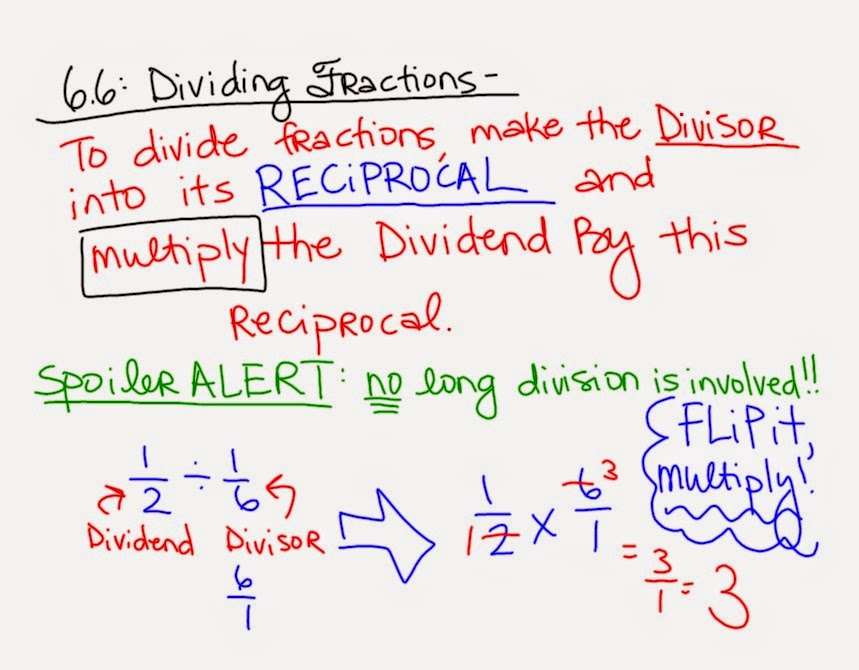 6.6: Dividing Fractions-
To divide fractions, make the Divisor
into its RECIPROCAL and
multiply the Dividend By this
Reciprocal.
Spoiler ALERT: no long division is involved!!
FLiP it,
multiply!
1/2 ÷ 1/6
Dividend Divisor
6/1
1/2 x 6/1
1 3
= 3/1 = 3